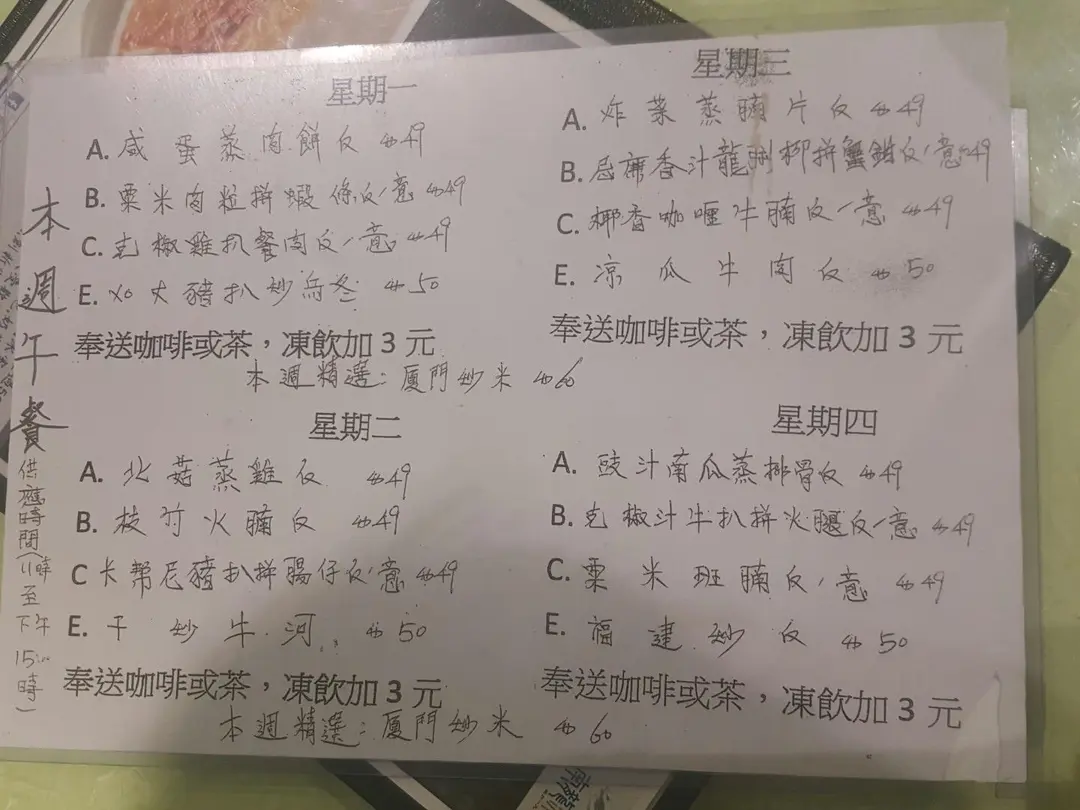 本週午餐
供應時間(11時至下午15:00時)
星期一
A. 咸蛋蒸肉餅反 $49
B. 粟米肉粒拚蝦條反/意 $49
C. 克椒雞扒餐肉反/意 $49
E. XO大豬扒炒烏冬 $50
奉送咖啡或茶，凍飲加 3 元
本週精選：厦門炒米 $60
星期二
A. 北菇蒸雞反 $49
B. 枝竹火腩反 $49
C 卡幫尼豬扒拚腸仔反/意 $49
E. 干炒牛河 $50
奉送咖啡或茶，凍飲加 3 元
本週精選：厦門炒米 $60
星期三
A. 炸菜蒸腩片反 $49
B. 忌廉香汁龍脷柳拚蟹鉗反/意 $49
C. 椰香咖喱牛腩反/意 $49
E. 凉瓜牛肉反 $50
奉送咖啡或茶，凍飲加 3 元
星期四
A. 豉汁南瓜蒸排骨反 $49
B. 克椒汁牛扒拼火腿反/意 $49
C. 粟米班腩反/意 $49
E. 福建炒反 $50
奉送咖啡或茶，凍飲加 3 元